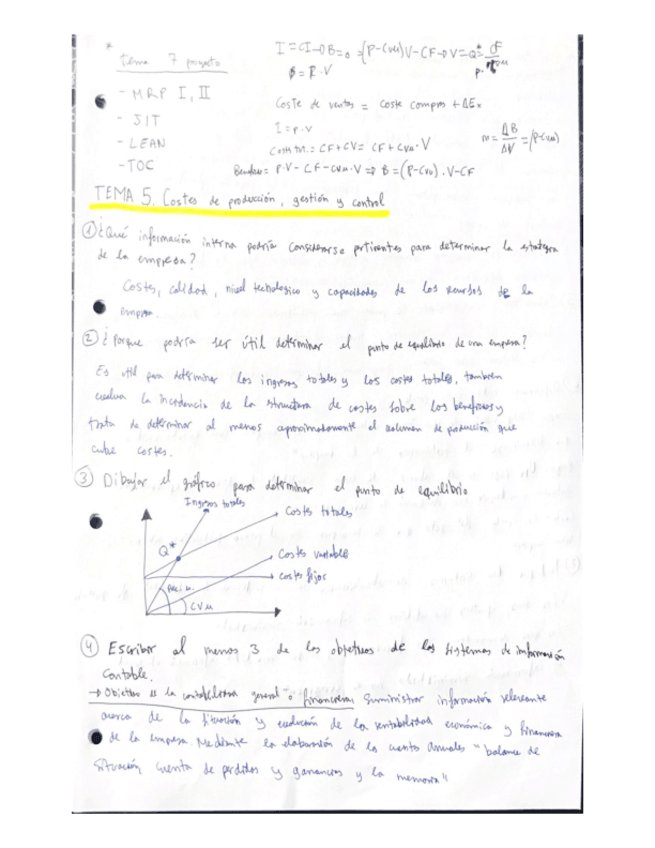 * Tema 7 proyecto
- MRP I, II
- JIT
- LEAN
- TOC
I = C
B = P · V
Coste de ventas = coste compras + ΔEx
I = p · v
Costes tot. = CF + CV = CF + CVu · V
m = ΔB/ΔV = (P-Cvu)
Beneficio = P·V - CF - CVu · V => B = (P-CVu) · V - CF
TEMA 5. Costes de producción, gestión y control
① ¿Qué información interna podría considerarse pertinentes para determinar la estategia
de la empresa?
Costes, calidad, nivel technologico y capacidades de los recursos de la
empresa.
② ¿Porque podría ser útil determinar el punto de equilibrio de una empresa?
Es util para determinar los ingresos totales y los costes totales, tambien
evalua la incidencia de la structura de costes sobre los beneficios y
trata de determinar al menos aproximadamente el volumen de producción que
cubre costes.
③ Dibujar el gráfico para determinar el punto de equilibrio
Ingresos totales
Costes totales
Q*
Costes variables
costes fijos
CVu
④ Escribir al menos 3 de los objetivos de los sistemas de información
Contable.
→ Objetivos de la contabilidad general o financiera: Suministrar información relevante
acerca de la situación y evolución de la rentabilidad económica y financiera
de la empresa. Mediante la elaboración de las cuentas anuales "balance de
situación, cuenta de perdidas y ganancias y la memoria"